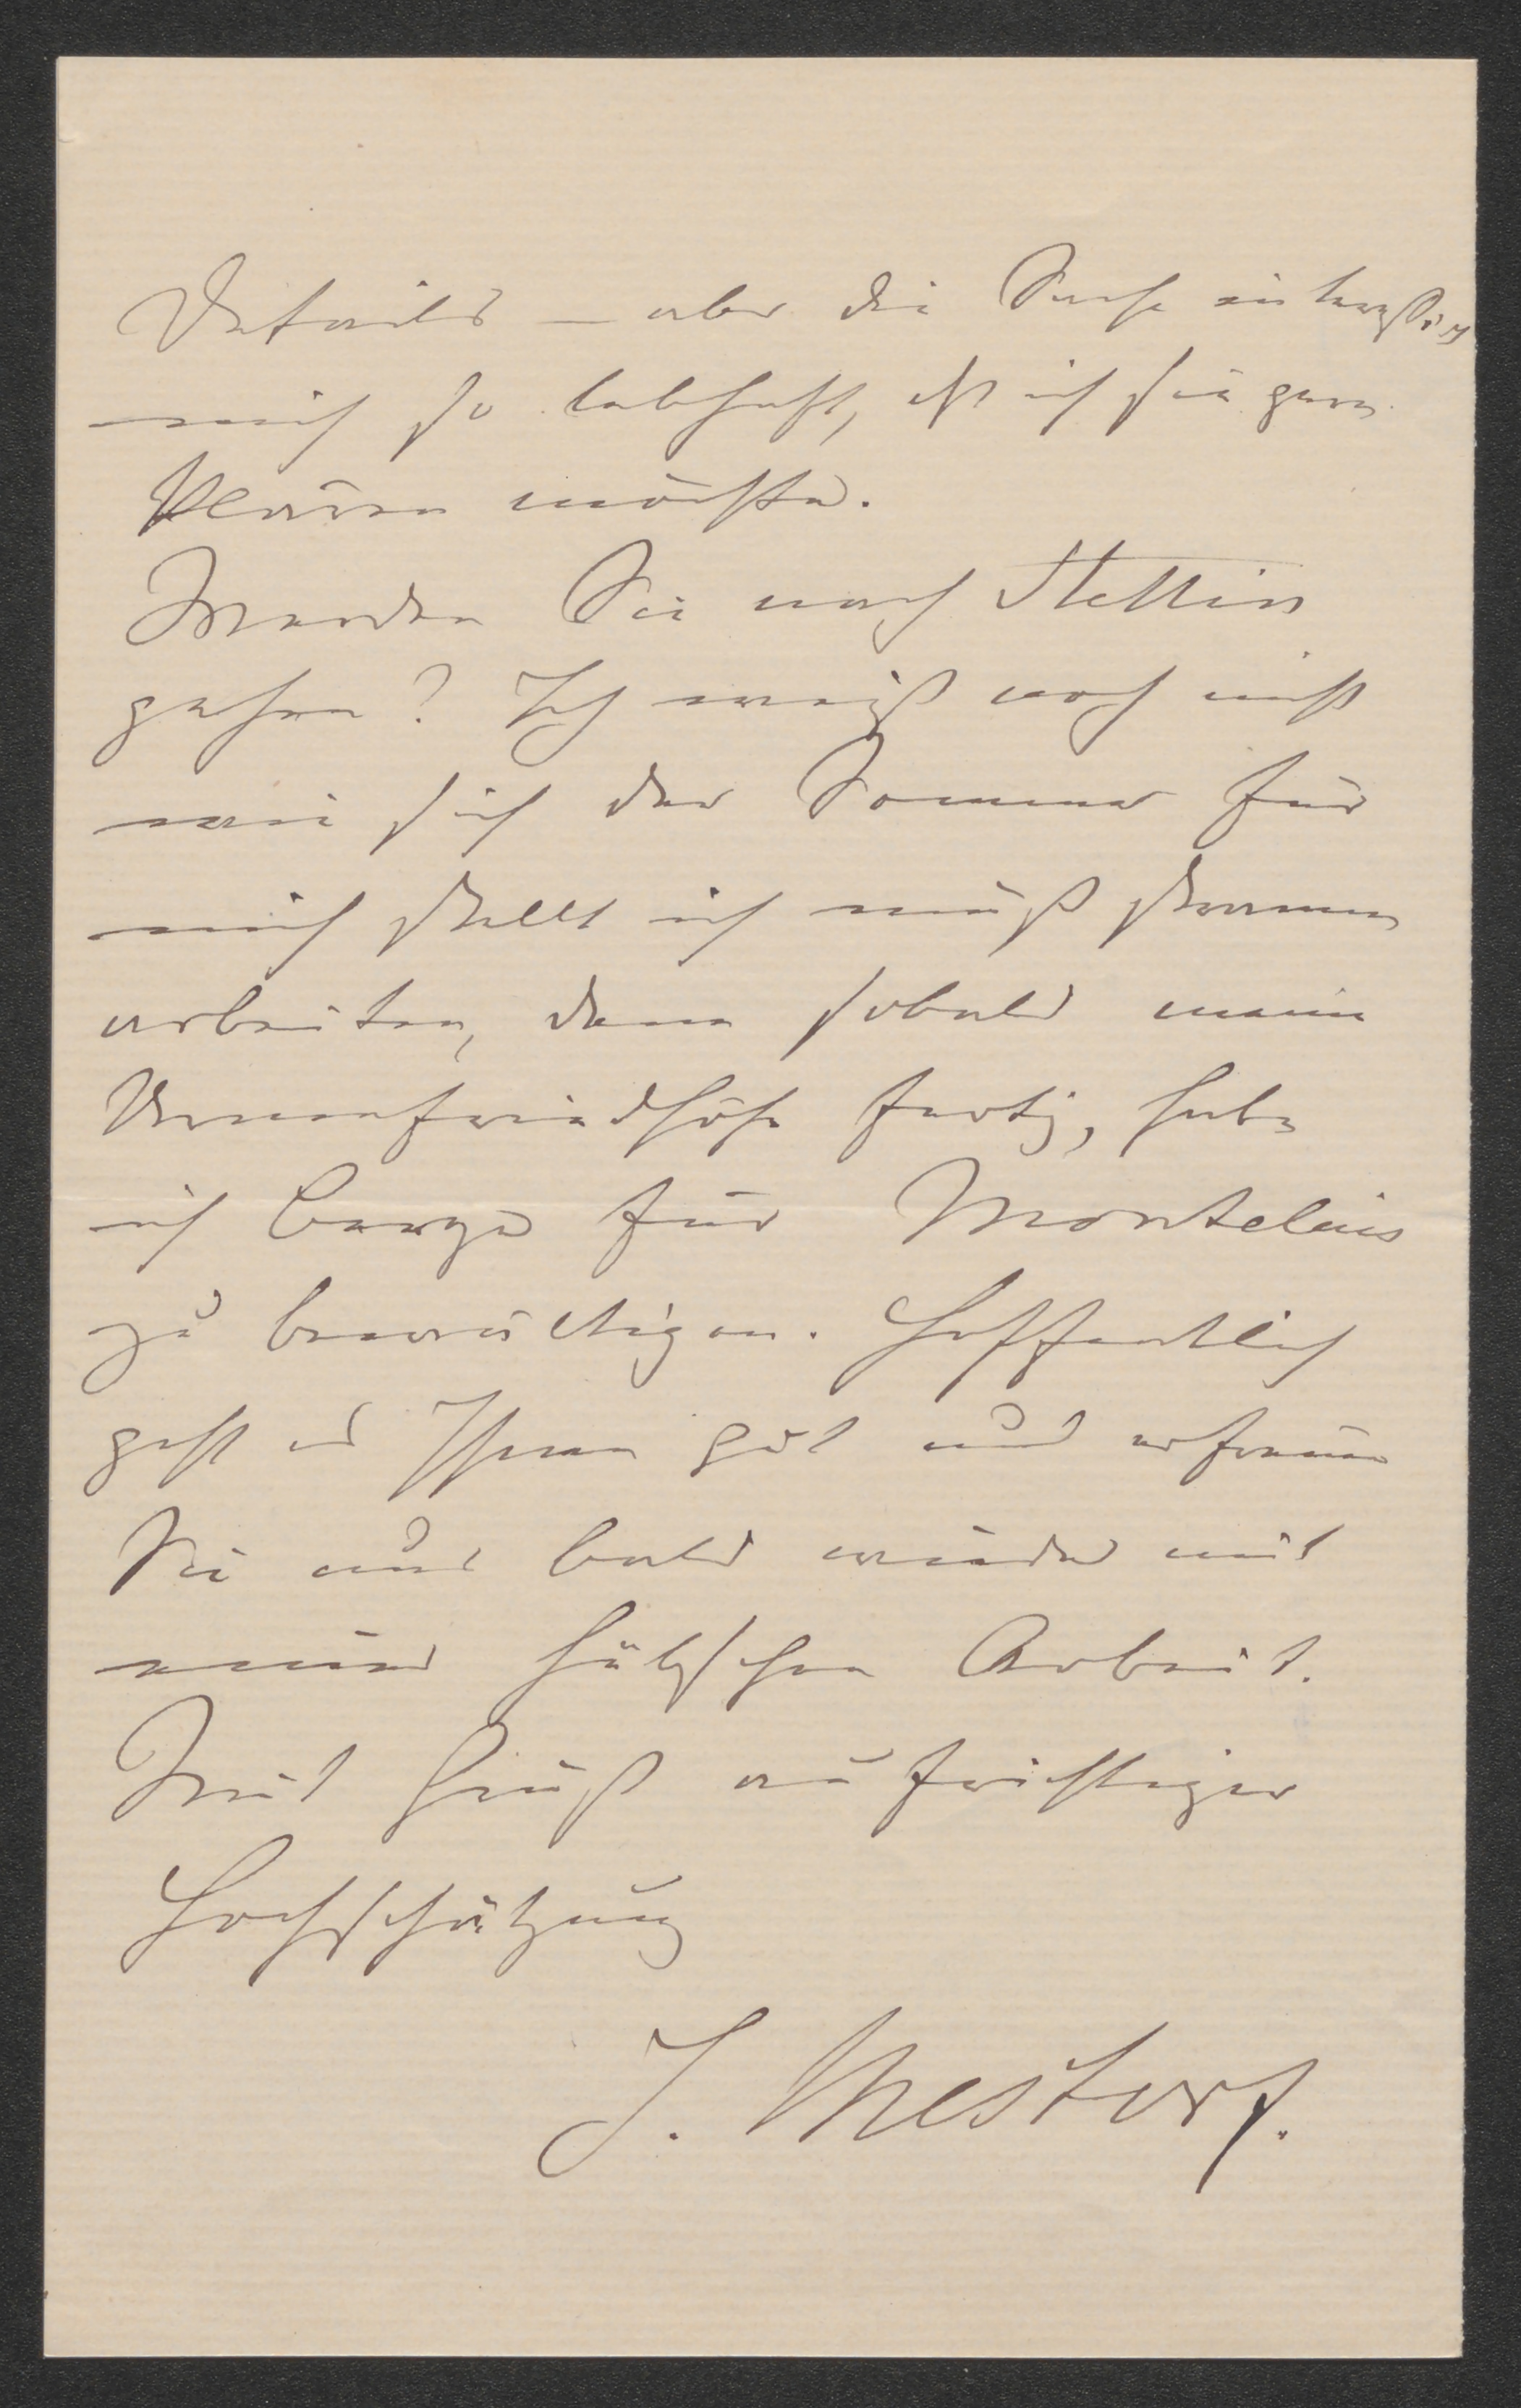 Details – aber die Sache interessirt
mich so lebhaft, daß ich sie gern
klären möchte.
Werden Sie nach Stettin
gehen? Ich weiß noch nicht
wie sich der Sommer für
mich stellt ich muß stramm
arbeiten, denn sobald meine
Urnenfriedhöfe fertig, habe
ich Berge für Montelius
zu bewältigen. Hoffentlich
geht es Ihnen gut und erfreuen
Sie uns bald wieder mit
einer hübschen Arbeit.
Mit Gruß aufrichtiger
Hochschätzung
J. Mestorf.